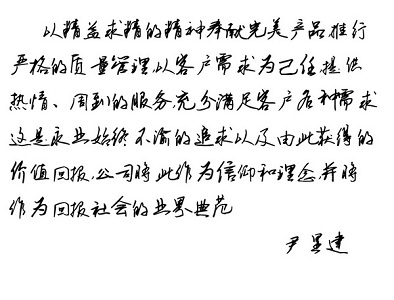 以精益求精的精神奉献完美产品推行
严格的质量管理以客户需求为己任提供
热情、周到的服务,充分满足客户各种需求
这是永业始终不渝的追求以及由此获得的
价值回报,公司将此作为信仰和理念,并将
作为回报社会的业界典范
尹星建